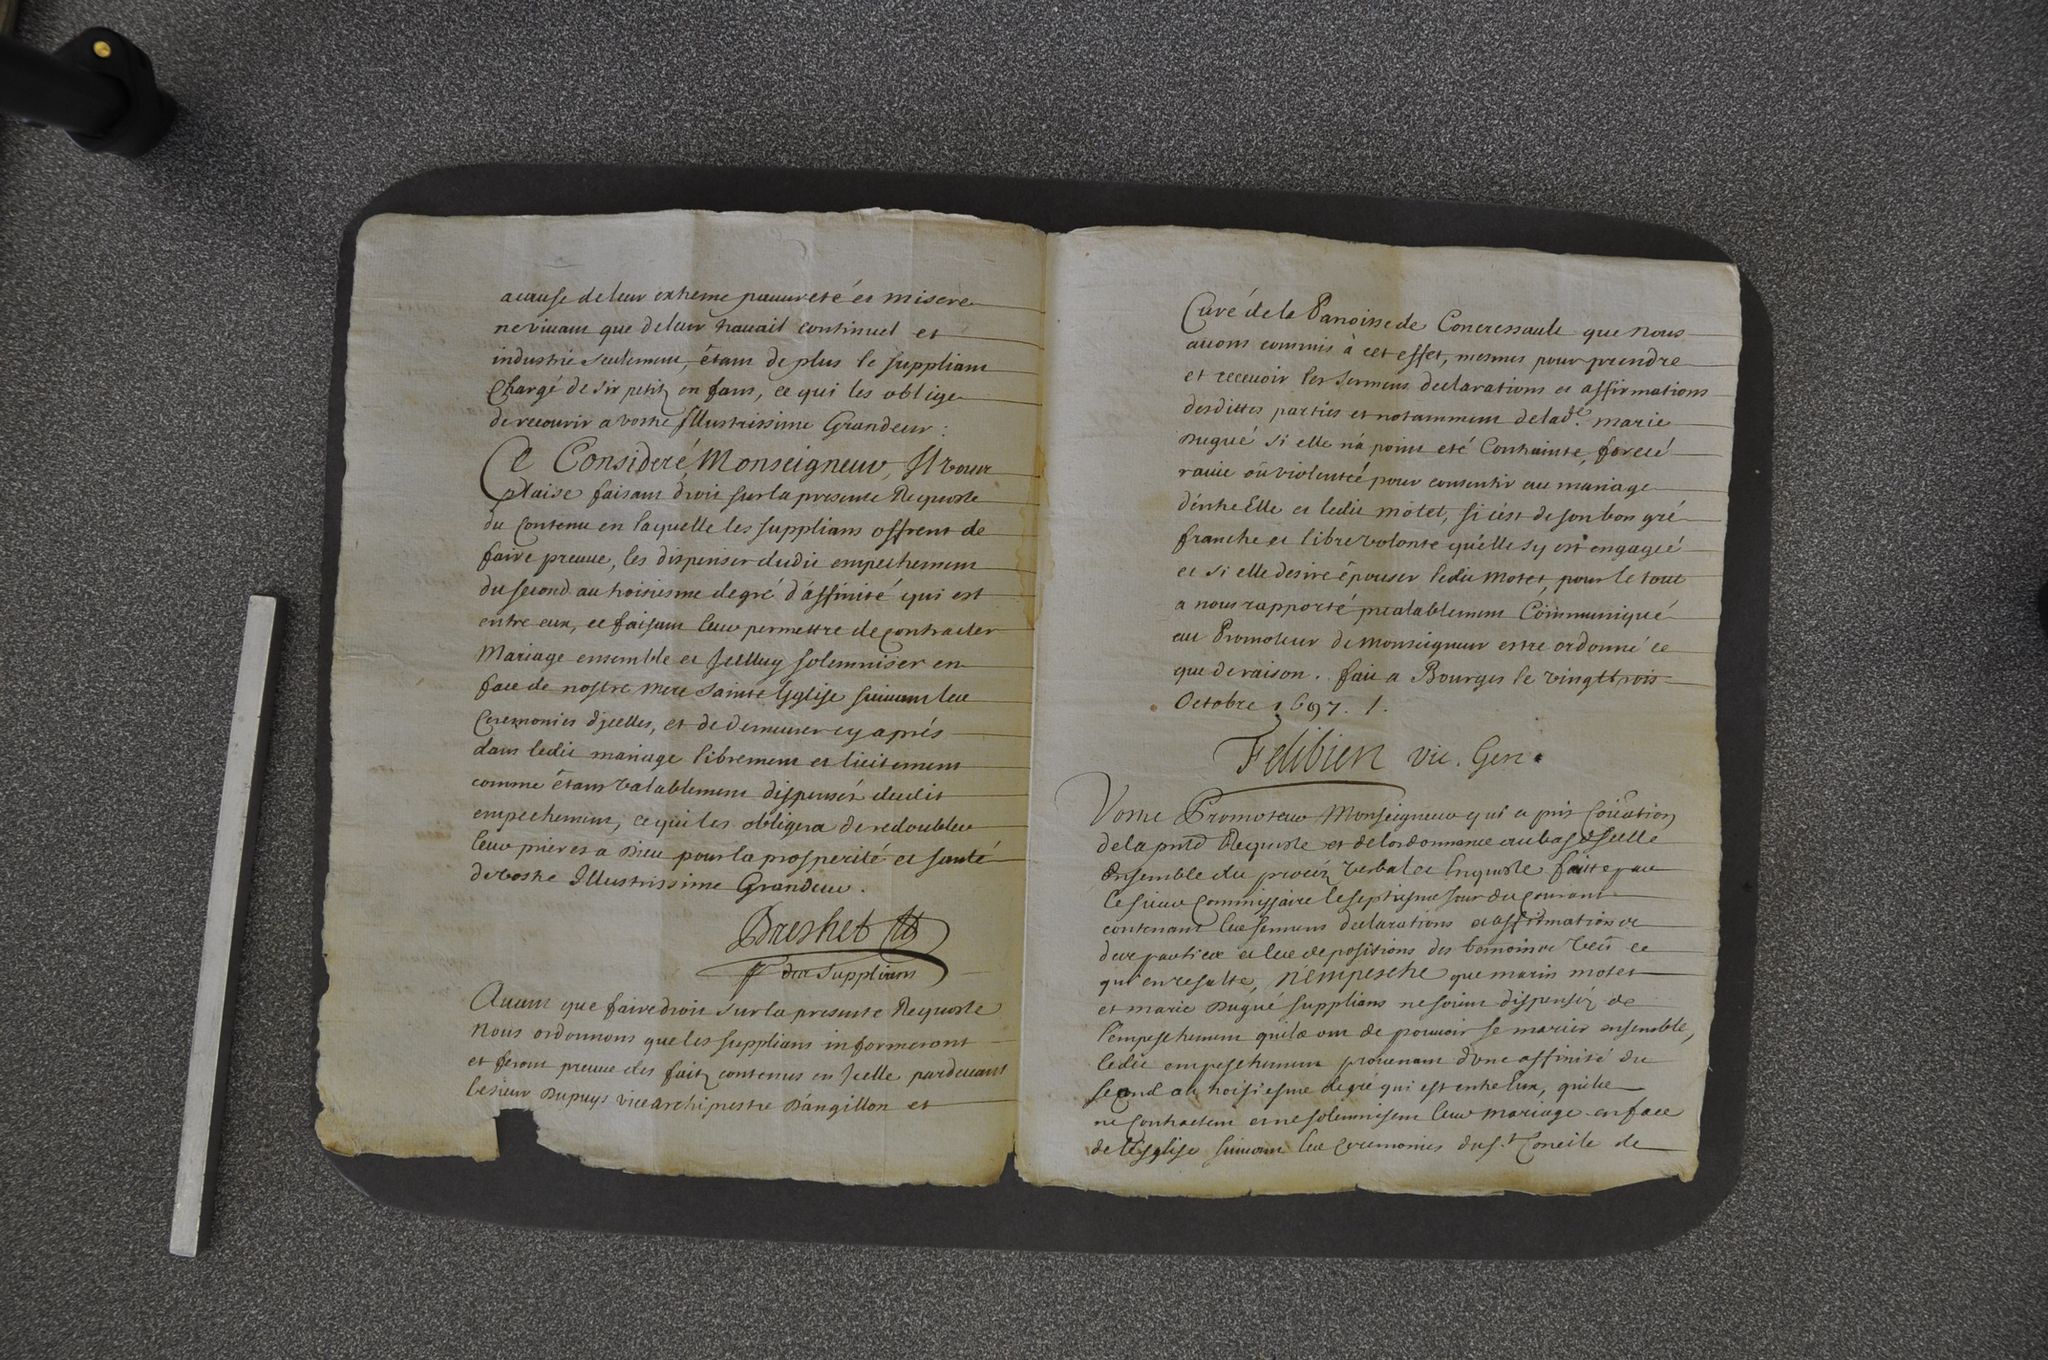 acause de leur extreme pauureté et misere
ne viuant que de leur trauail continuel et
industrie seulement, étant de plus le suppliant
Chargé de six petitz enfans, ce qui les oblige
de recourir a vostre Illustrissime Grandeur :
Ce Consideré, Monseigneur, Il vous
plaise faisant droit sur la presente Requeste
du contenu en laquelle les supplians offrent de
faire preuue, les dispenser dudit empechement
du second au troisisme degré d'affinité qui est
entre eux, ce faisant leur permettre de contracter
Mariage ensemble et Icelluy solemniser en
face de nostre mere Sainte Eglise suiuant les
Ceremonies d'jcelles, et de demeurer cy aprés
dans ledit mariage librement et licitement
comme étans valablement dispensés dudit
empechement, ce qui les obligera de redoubler
leurs prieres a Dieu pour la prosperité et santé
de vostre Illustrissime Grandeur.
Breshet
des supplians
Auant que faire droit sur la presente Requeste
Nous ordonnons que les supplians informeront
et feront preuue des faitz contenus en Icelle pardeuant
le sieur Dupuys vice archiprestre D'angillon et
Curé de la Parroisse de Concressault que nous
auons commis à cet effet, mesmes pour prendre
et receuoir les sermens declarations et affirmations
desdittes parties et notamment de lad.e marie
Dugué si elle n'a point eté Contrainte, forcée
rauie ou violentée pour consentir au mariage
d'entre Elle et ledit motet, si c'est de son bon gré
franche et libre volonte qu'elle s'y est engagée
et si elle desire épouser ledit Motet, pour le tout
a nous rapporté prealablement Communiqué
au Promoteur de Monseigneur estre ordonné ce
que de raison. fait a Bourges le vingt trois
Octobre 1697. /.
Felibien vic. Gen.
Vostre Promoteur Monseigneur qui a pris
de la pnte Requeste et de lordonnance au bas d'Icelle
Ensemble du procéz verbal et Enqueste faitte par
le sieur Commissaire le septiesme jour du courant
contenant les sermens declarations et affirmations
des parties et les depositions des temoins veü ce
qui en resulte, N'empesche que marin motet
et marie Dugué supplians ne soient dispenséz de
l'empeschement quils ont de pouuoir se marier ensemble,
ledit empeschement prouenant d'une affinité du
second au troisiesme degré qui est entre Eux, qu'ils
ne contractent et ne solemnisent leur mariage en face
de l'Eglise suiuant les ceremonies du s.t Concile de